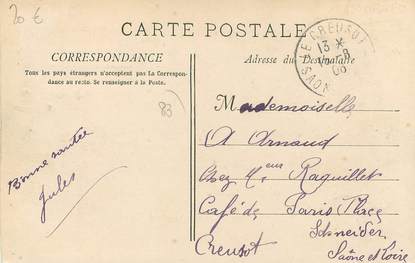 20 €
CARTE POSTALE
CORRESPONDANCE
Tous les pays étrangers n'acceptent pas la Correspon-
dance au recto. Se renseigner à la Poste.
Adresse du Destinataire
LE CREUSOT
13 *
8
06
SAÔNE
83
Mademoiselle
A Arnaud
Chez Meur Raguillet
Café de Paris Place
Schneider
Creusot
Saône et Loire
Bonne santée
Jules